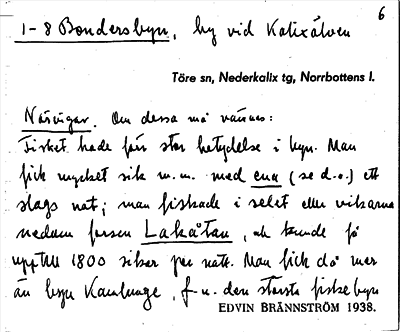 6
1-8 Bondersbyn, by vid Kalixälven
Töre sn, Nederkalix tg, Norrbottens l.
Näringar. Om dessa må nämnas:
Fisket hade förr stor betydelse i byn. Man
fick mycket sik m.m. med ena (se d.o.) ett
slags not; man fiskade i selet eller vikarna
nedom forsen Lakåtan, och kunde få
upp till 1800 sikar per natt. Man fick då mer
än byn Kamlunge, f.n. den största fiskebyn
EDVIN BRÄNNSTRÖM 1938.